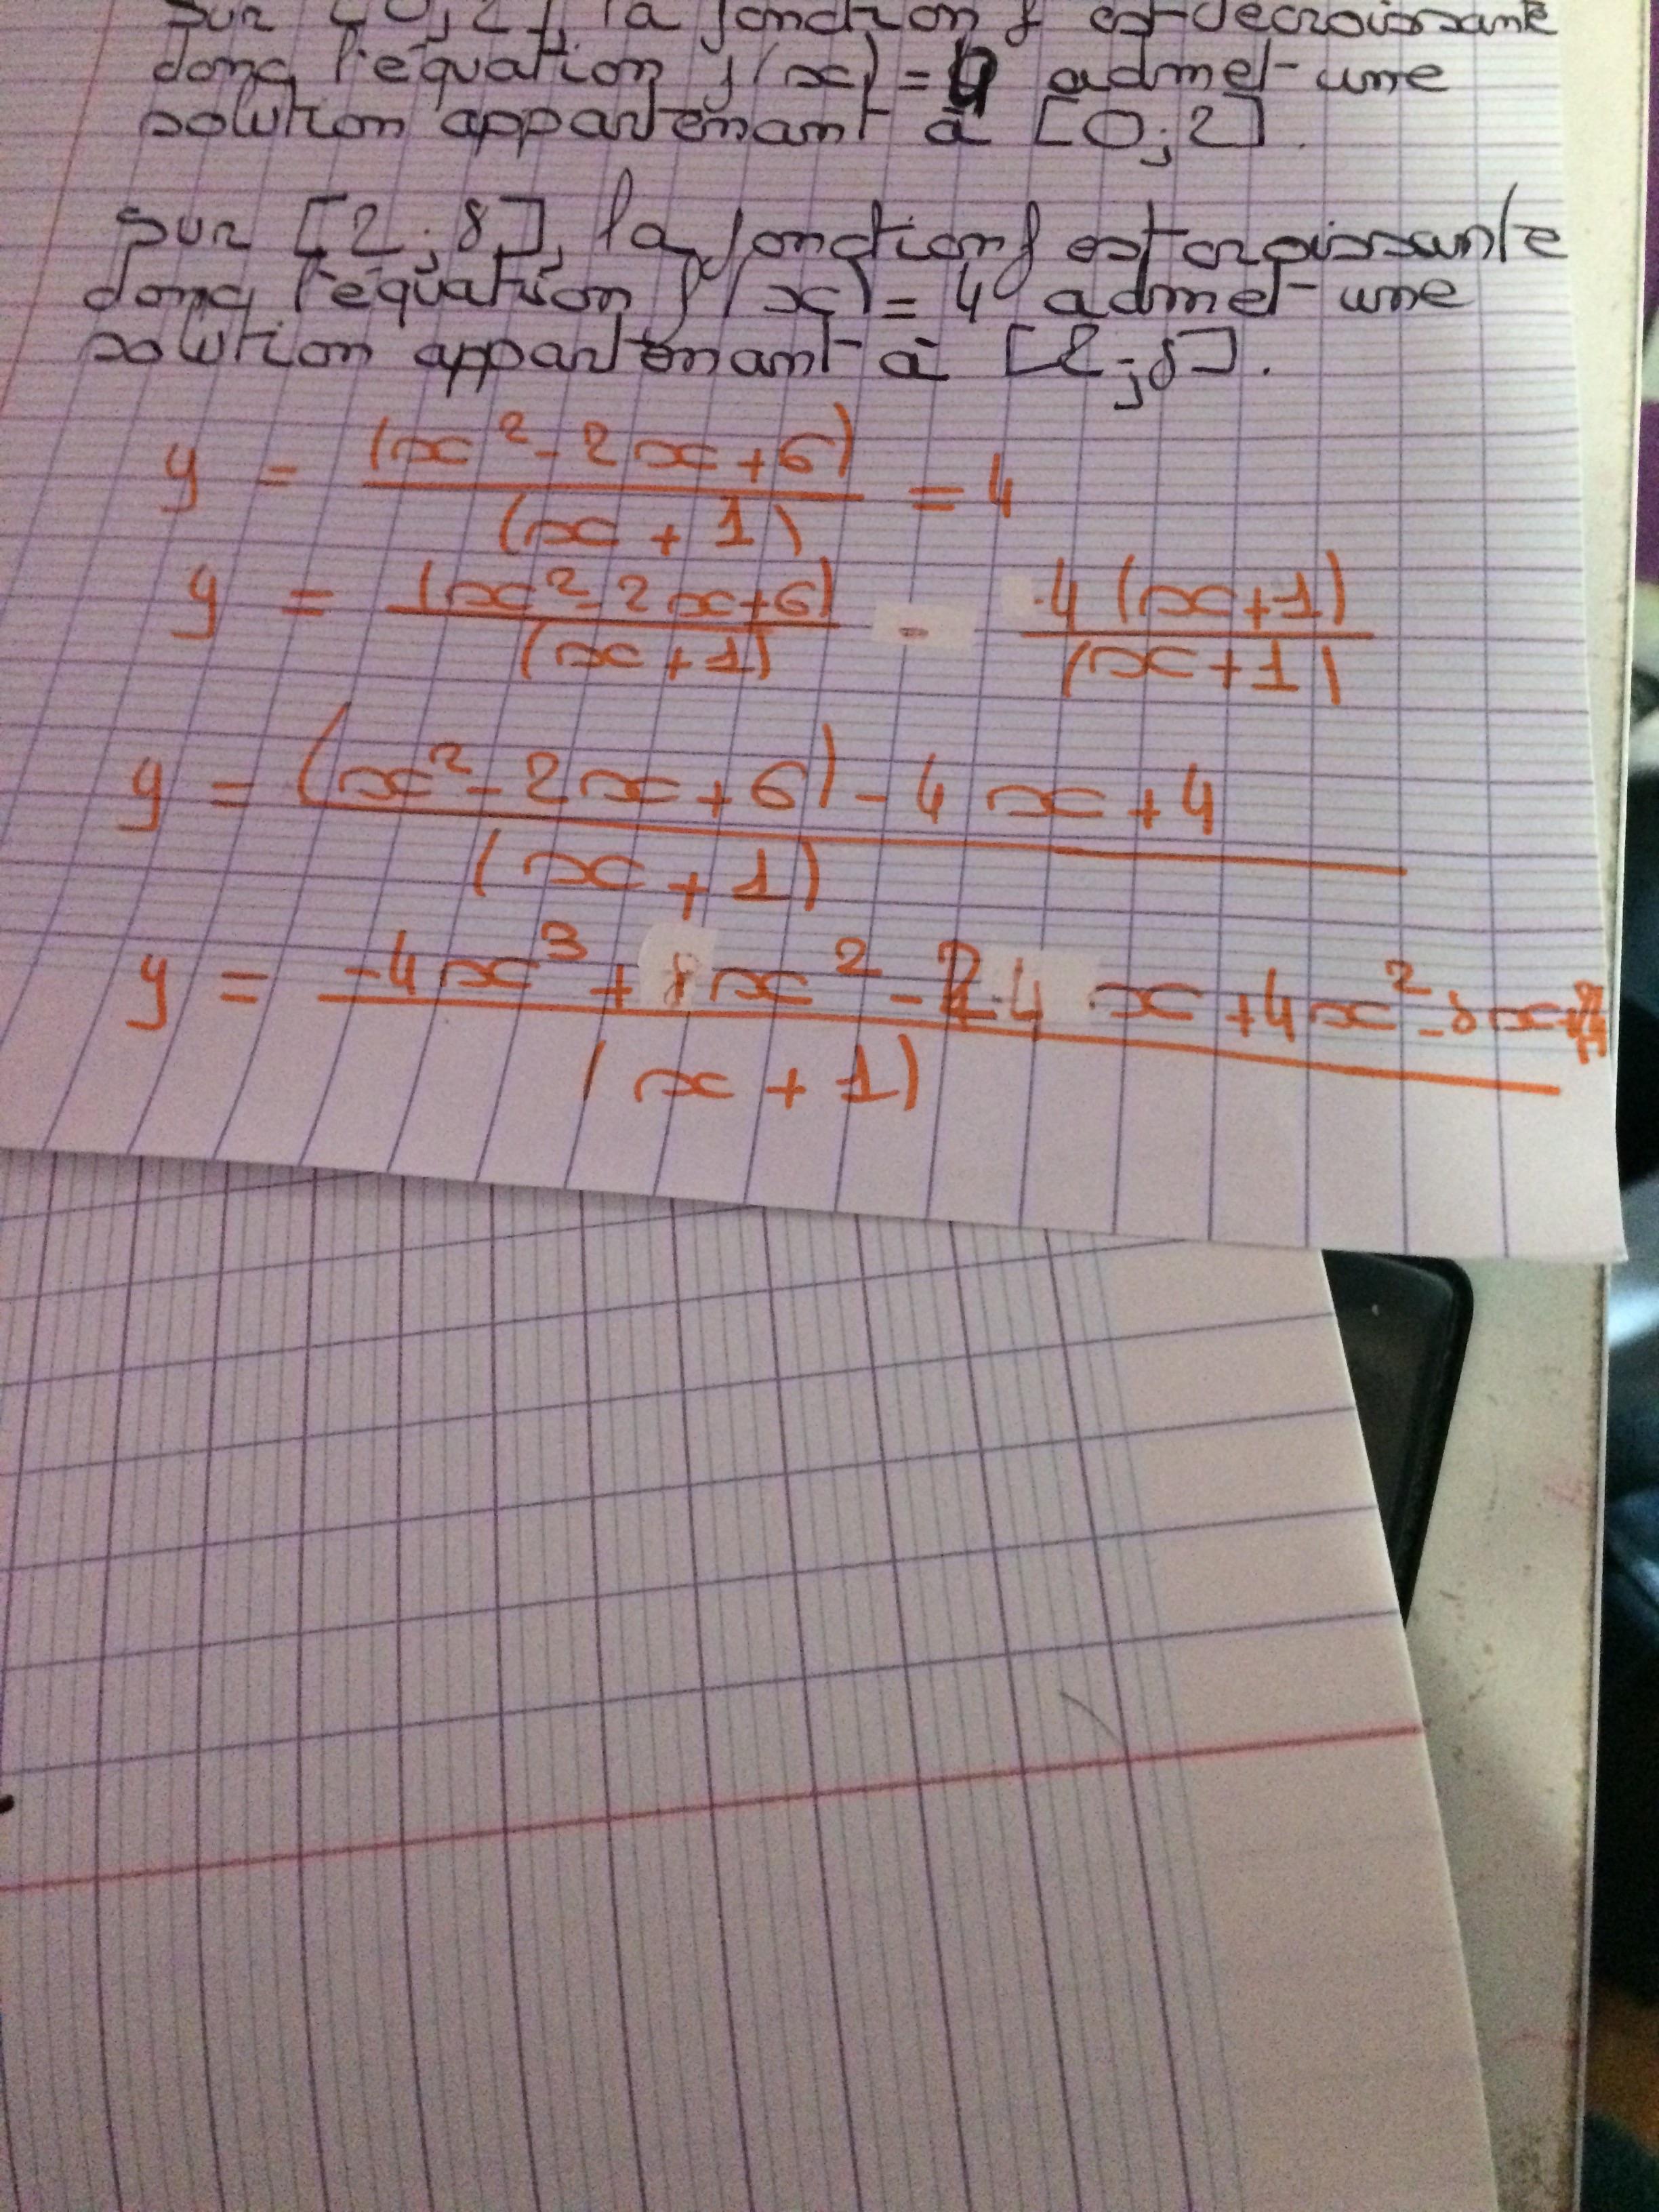 sur [0;2], la fonction f est decroissante
donc l'équation f(x) = 4 admet une
solution appartenant à [0;2].
sur [2;8], la fonction f est croissante
donc l'équation f(x) = 4 admet une
solution appartenant à [2;8].
y = (x² - 2x + 6) / (x + 1) = 4
y = (x² - 2x + 6) / (x + 1) - 4(x + 1) / (x + 1)
y = (x² - 2x + 6) - 4x + 4 / (x + 1)
y = -4x³ + 8x² - 24x + 4x² - 8x + / (x + 1)